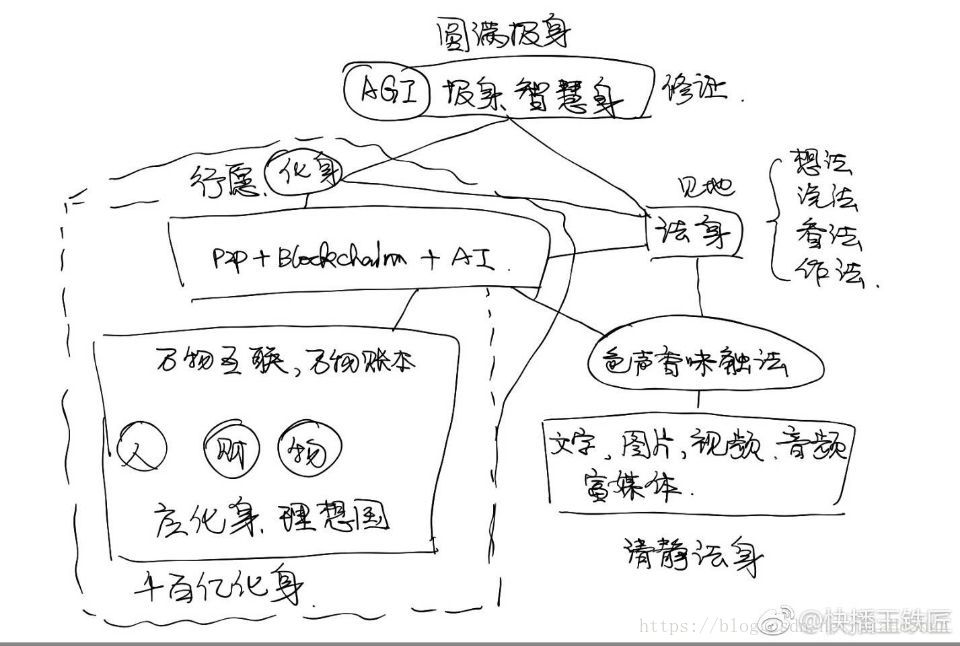 圆满报身
AGI 报身 智慧身 修证.
行愿. 化身
见地
法身
想法
说法
看法
作法.
P2P + Blockchain + AI.
万物互联, 万物账本
人 财 物
应化身. 理想国
千百亿化身.
色声香味触法
文字, 图片, 视频. 音频
富媒体.
清静法身
@快播王铁匠